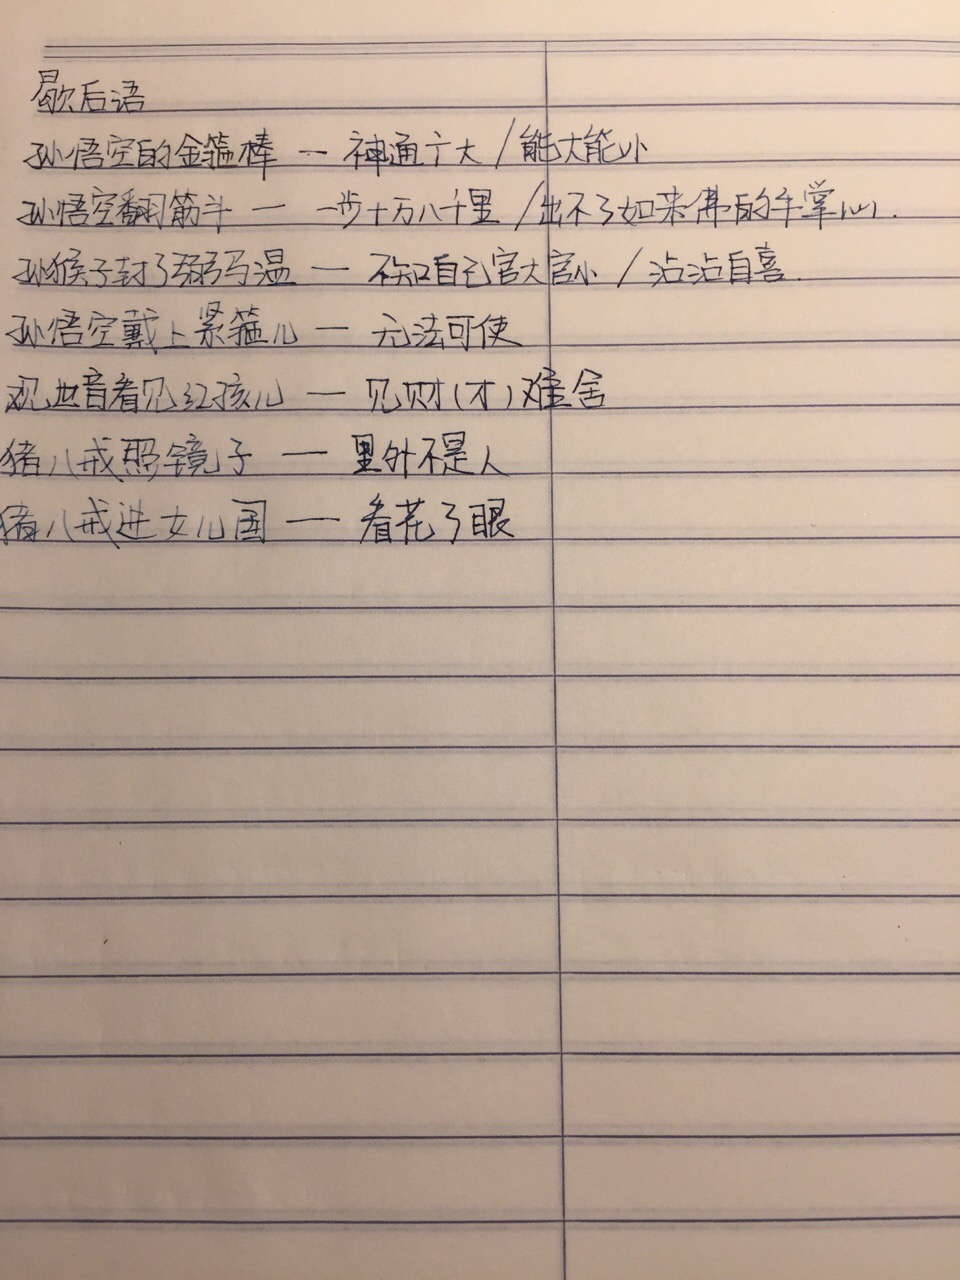 歇后语
孙悟空的金箍棒 — 神通广大 / 能大能小
孙悟空翻筋斗 — 一步十万八千里 / 出不了如来佛的手掌心.
孙猴子封了弼马温 — 不知自己官大官小 / 沾沾自喜.
孙悟空戴上紧箍儿 — 无法可使
观世音看见红孩儿 — 见财(才)难舍
猪八戒照镜子 — 里外不是人
猪八戒进女儿国 — 看花了眼